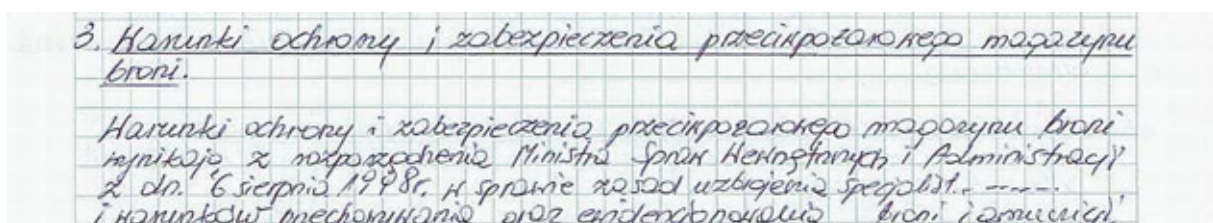 3. Warunki ochrony i zabezpieczenia przeciwpożarowego magazynu
broni.
Warunki ochrony i zabezpieczenia przeciwpożarowego magazynu broni
wynikają z rozporządzenia Ministra Spraw Wewnętrznych i Administracji
z dn. 6 sierpnia 1998r. w sprawie zasad uzbrojenia specjalist. ------.
i warunków przechowywania oraz ewidencjonowania broni i amunicji.